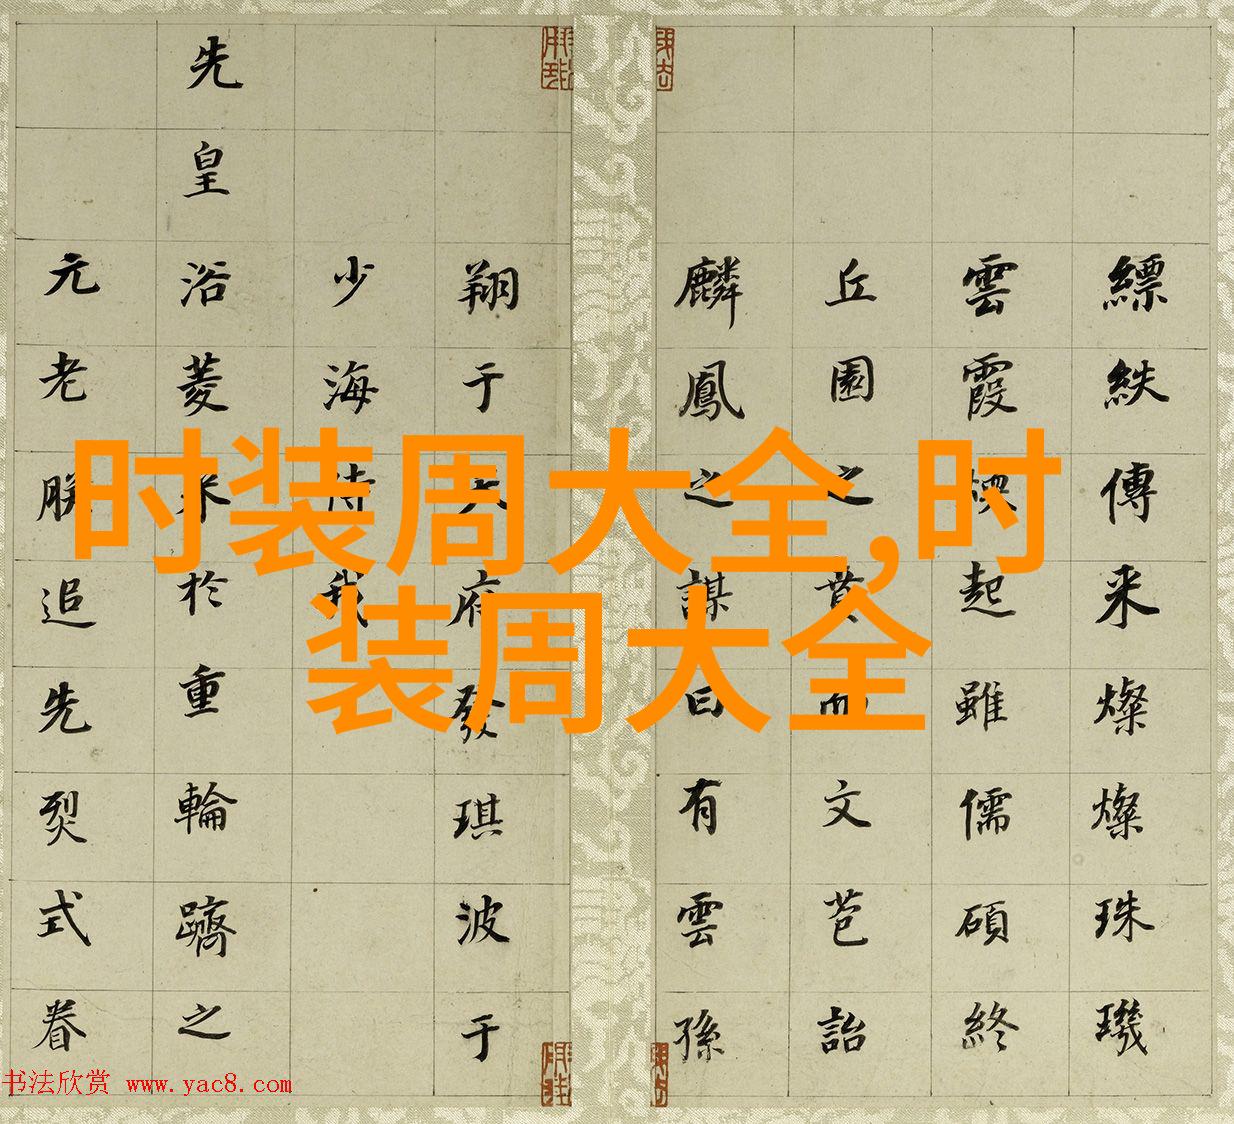 縹紩傳来燦燦珠璣
雲霞起雖儒碩終
丘園之賁而文苞詒
麟鳳之謀曰有雲孫
翔于天府發琪波于
少海侍我
先皇浴菱米於重輪躋之
元老朕追先烈式眷
时装周大全,时
装周大全
书法欣赏 www.yac8.com